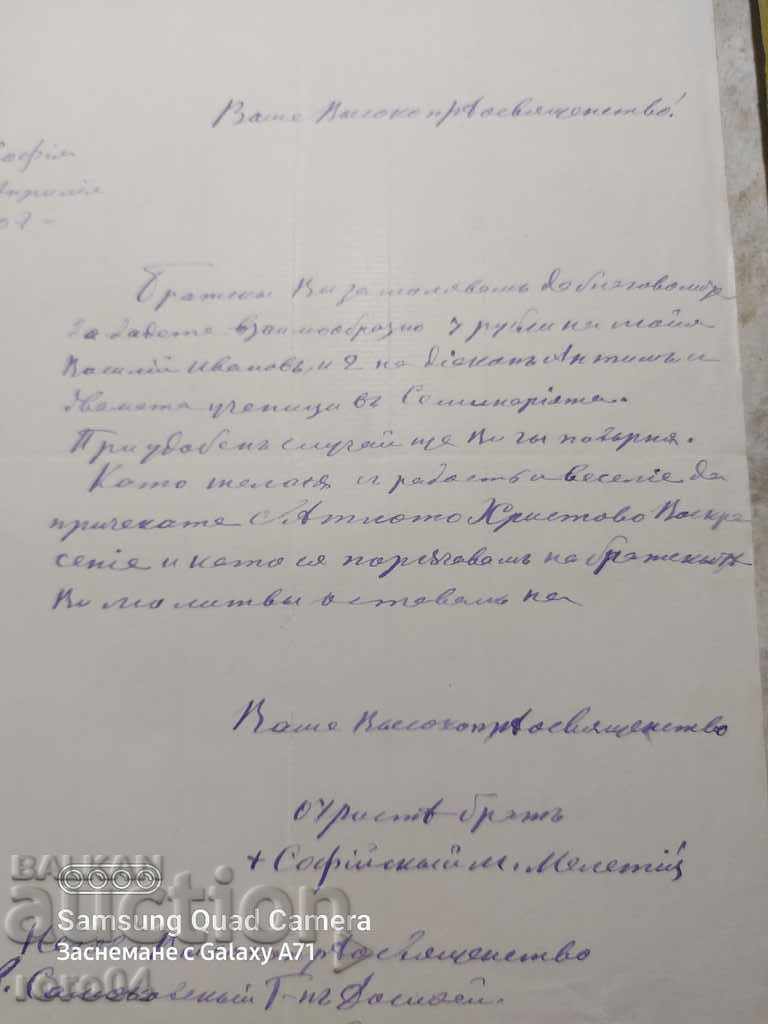 Ваше Высокопрѣосвященство!
офія
Априлія
Братски Ви замолявамъ да благоволите
да дадете взаимообразно 4 рубли на
Василій Ивановъ, и 2 на діаконъ Антимъ и
двамата ученици въ Семинаріята.
При удобенъ случай ще Ви гы повърна.
Като желая съ радость и веселіе да
причекате Святлото Христово Воскре
сеніе и като ся поръчвамъ на братскытѣ
Ви молитвы оставамъ на
Ваше Высокопрѣосвященство
о Христѣ братъ
+ Софійскый м. Мелетій
Высокопрѣосвященство
Самоковскый Г-нъ Доситей.
BALKAN
auction
Samsung Quad Camera
Заснемане с Galaxy A71
roro04